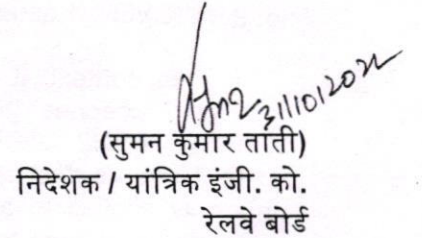 31/10/2022
(सुमन कुमार ताती)
निदेशक / यांत्रिक इंजी. को.
रेलवे बोर्ड